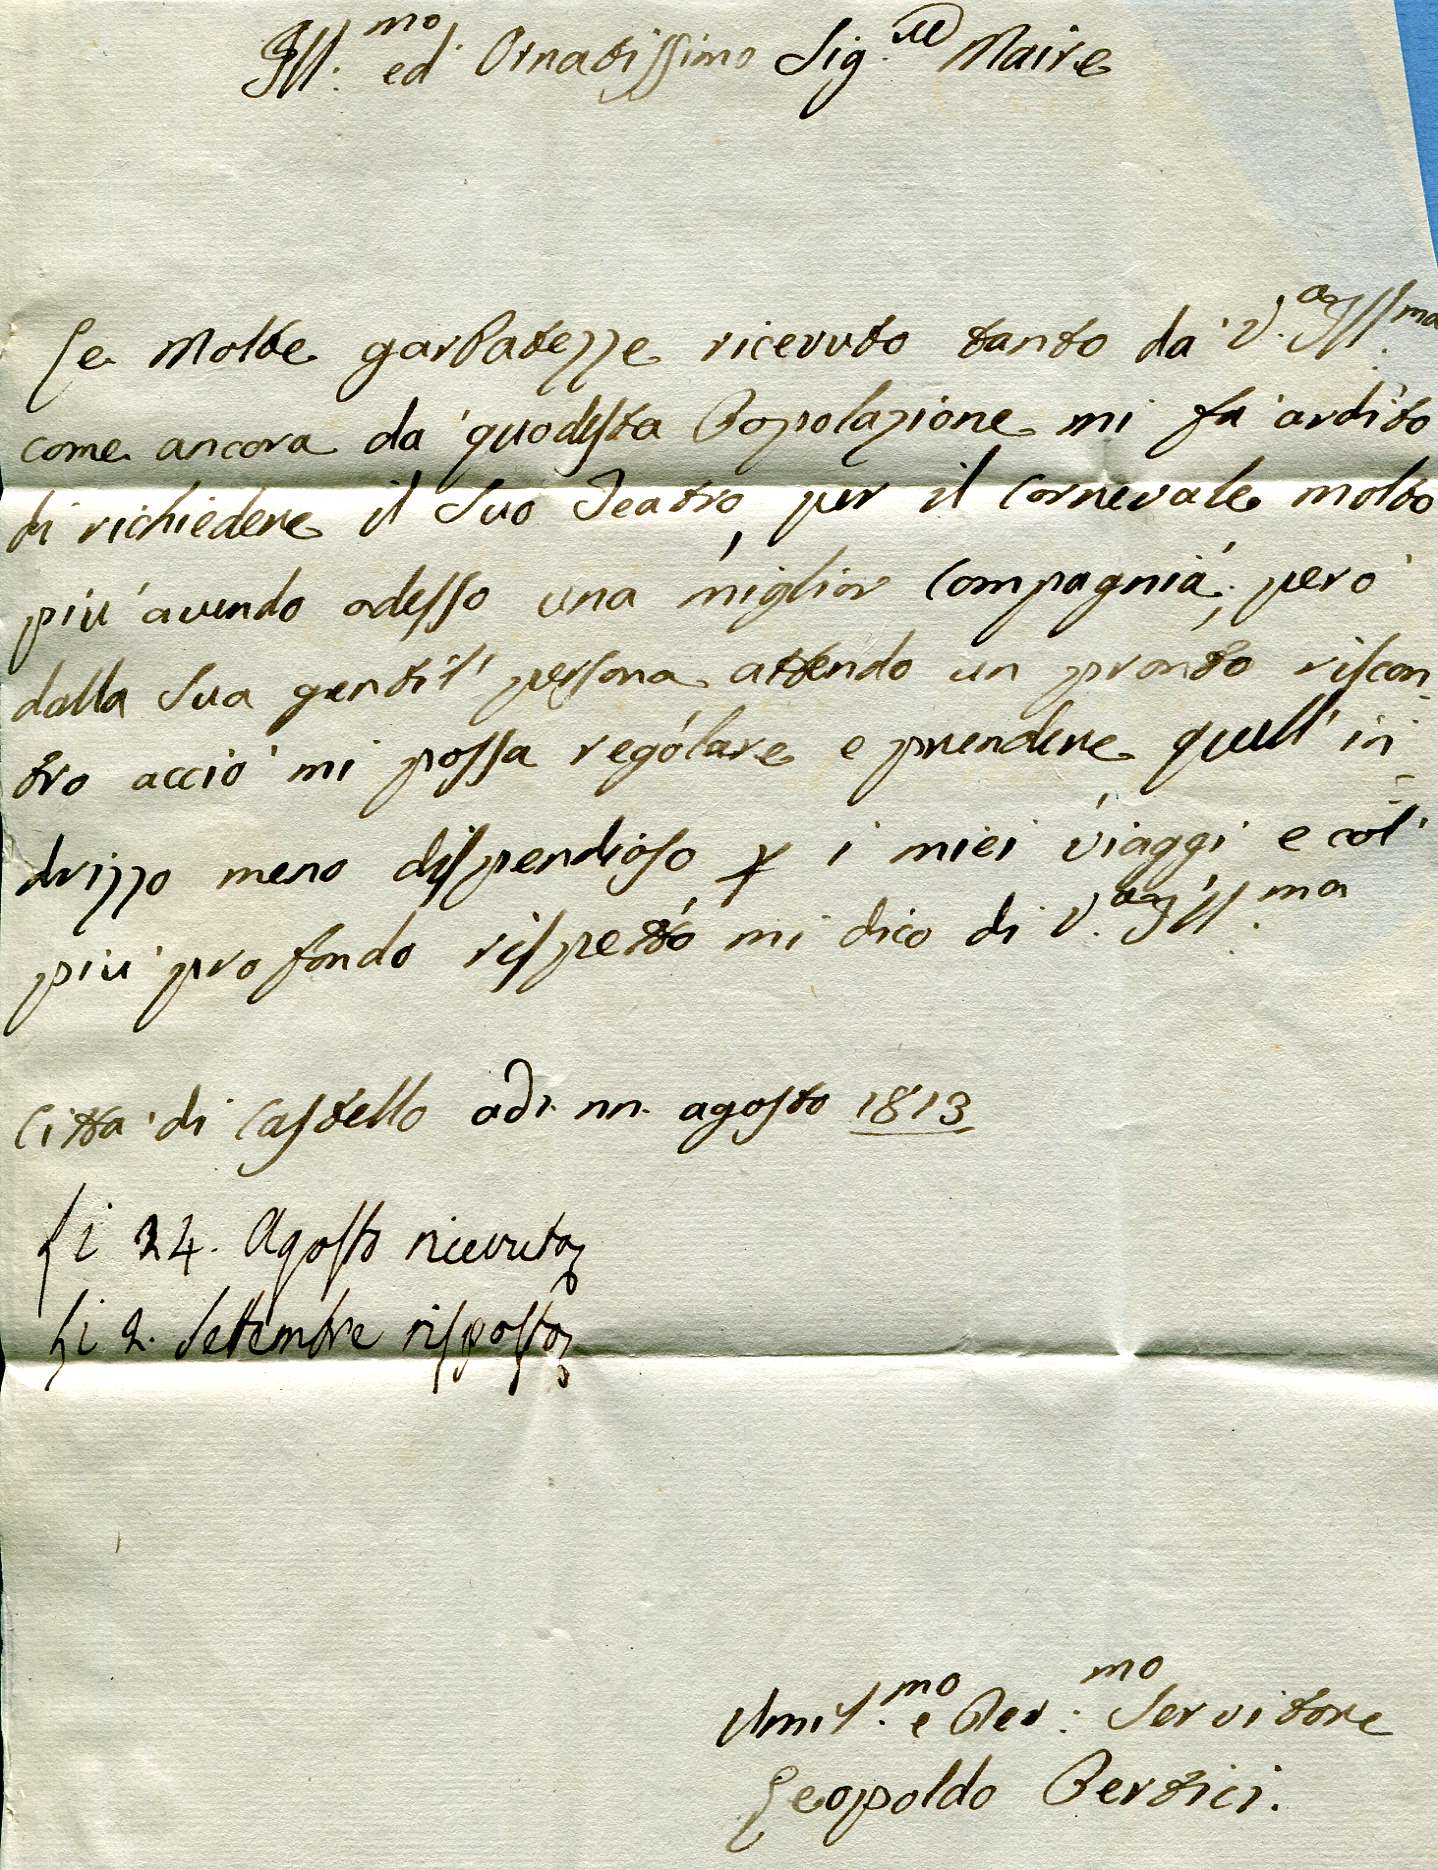 Ill.mo ed Ornatissimo Sig.re Maire
Le Molte garbatezze ricevuto tanto da V.a Ill.ma
come ancora da quodesta Popolazione mi fa ardito
di richiedere il Suo Teatro, per il Cornevale molto
piu avendo adesso una miglior Compagnia, pero
dalla Sua gentil persona attendo un pronto riscon
tro accio mi possa regolare e prendere quell in
drizzo meno dispendioso p i miei viaggi e col
piu profondo rispetto mi dico di V.a Ill.ma
Citta di Castello adi. nn. agosto 1813
Li 24. Agosto ricevuta
Li 2. Settembre risposta
Umil.mo e Dev:mo Servitore
Leopoldo Pertici.